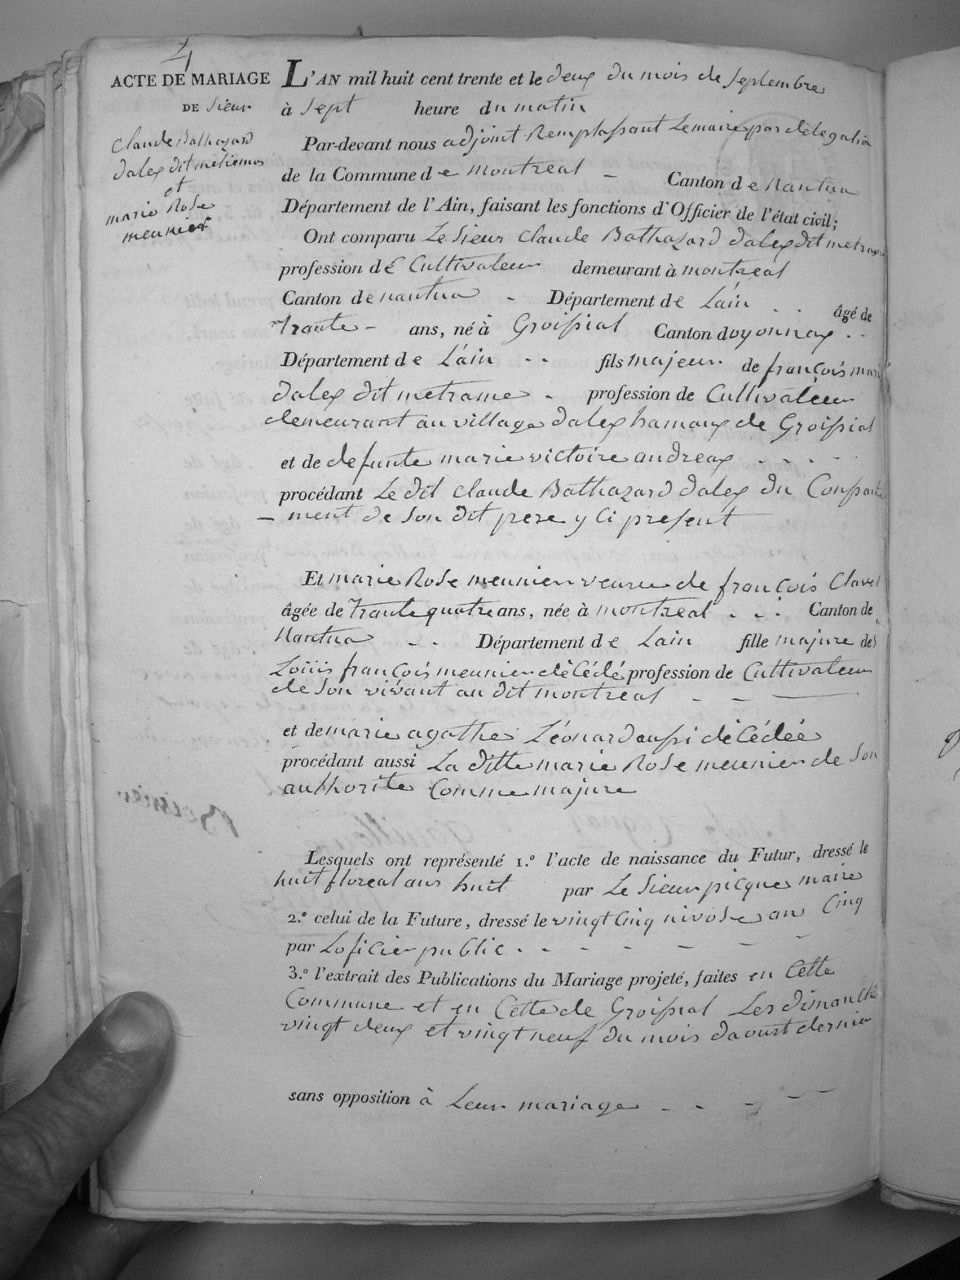 4
ACTE DE MARIAGE
DE Sieur
Claude Balthazard
Dalex dit métrame
et
marie Rose
meunier
L'AN mil huit cent trente et le deux du mois de Septembre
à Sept heure du matin
Par-devant nous adjoint Remplassant Lemaire par délégation
de la Commune de montreal - Canton de Nantua
Département de l'Ain, faisant les fonctions d'Officier de l'état civil;
Ont comparu Le Sieur Claude Bathazard Dalex dit metrame
profession de Cultivateur demeurant à montreal
Canton de nantua - Département de Lain . . âgé de
Trante - ans, né à Groissiat Canton doyonnax . .
Département de L'ain . . fils majeur de françois marie
Dalex dit metrame - profession de Cultivateur
demeurant au village Dalex hamaux de Groissiat
et de defunte marie victoire andreax . . . .
procédant Le dit Claude Bathazard Dalex du Consante
- ment de Son dit pere y Ci present
Et marie Rose meunier veuve de françois Clavel
âgée de Trante quatre ans, née à montreal . . . Canton de
Nantua . . Département de Lain fille majure de
Loüis françois meunier dècédé profession de Cultivateur
de Son vivant au dit montreal - - -
et de marie agathe Léonard aussi dècédée
procédant aussi La ditte marie Rose meunier de Son
authorite Comme majure
Lesquels ont représenté 1.º l'acte de naissance du Futur, dressé le
huit floreal an huit par Le Sieur picque maire
2.º celui de la Future, dressé le vingt Cinq nivose an Cinq
par Loficier public - - - - - -
3.º l'extrait des Publications du Mariage projeté, faites en Cette
Commune et en Cette de Groissiat Les dimanche
vingt deux et vingt neuf du mois daoust dernier
sans opposition à Leur mariage - - - - -